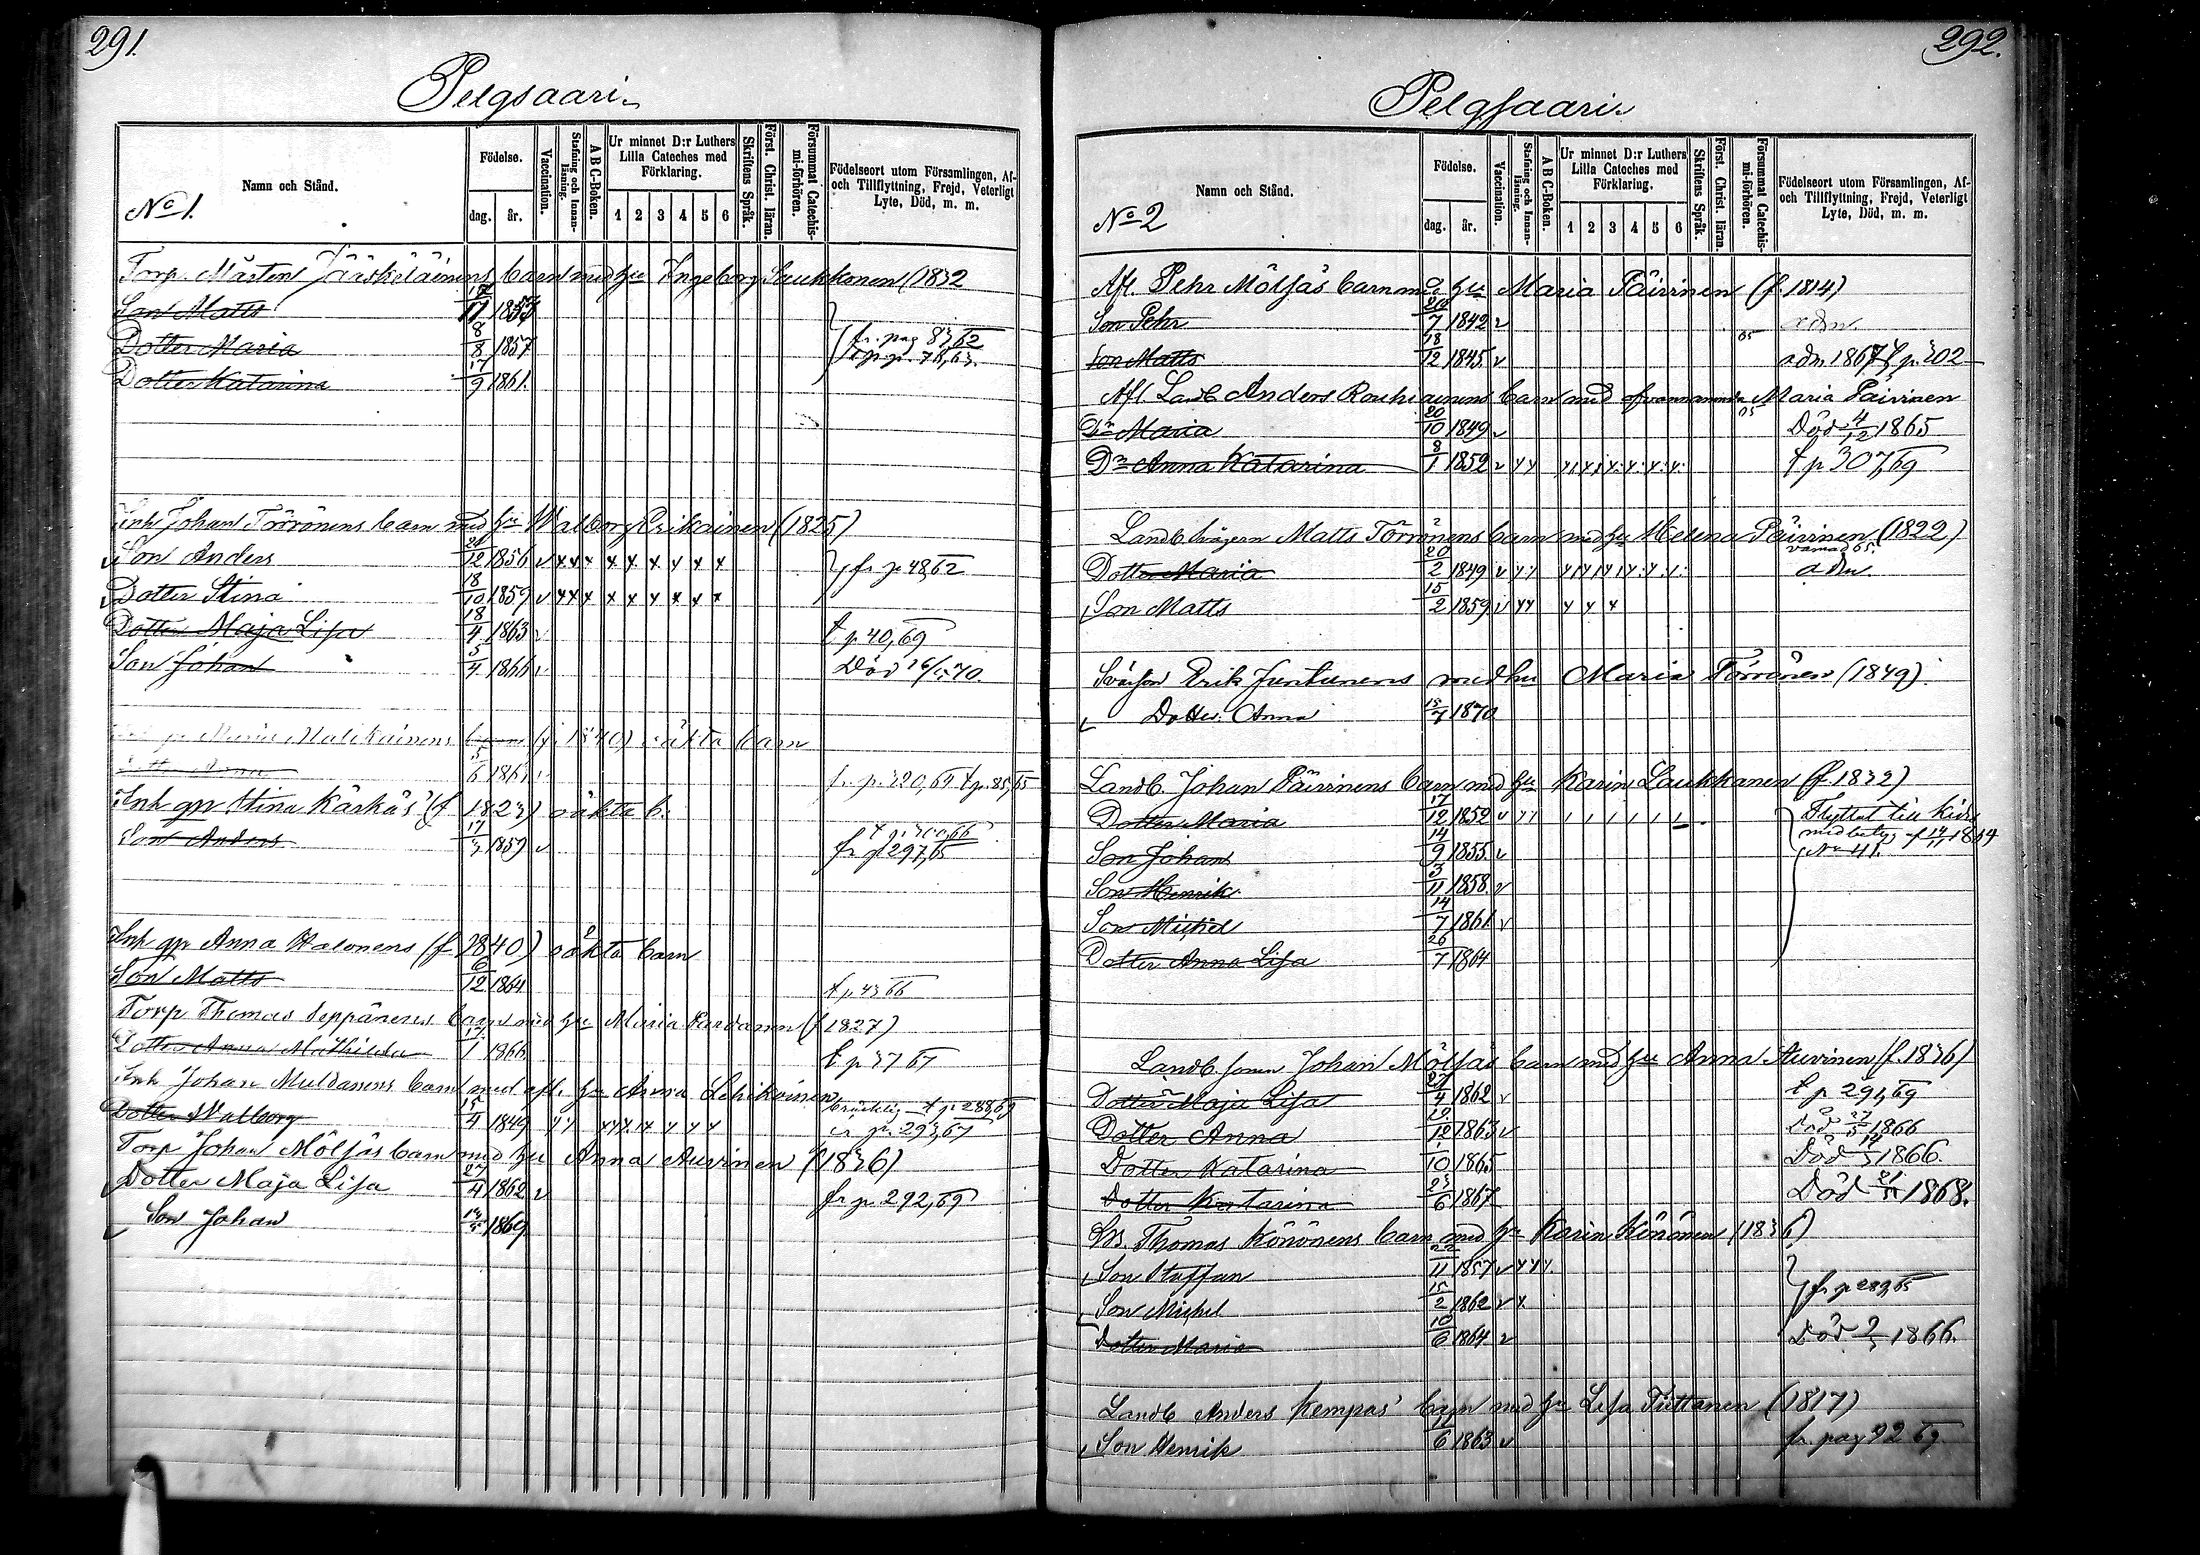 291.
Pelgsaari
No 1.
Namn och Stånd.
Födelse.
dag. år.
Vaccination.
Stafning och Innanläsning.
A B C-Boken.
Ur minnet D:r Luthers Lilla Cateches med Förklaring.
1 2 3 4 5 6
Skriftens Språk.
Först. Christ. läran.
Försummat Catechismi-förhören.
Födelseort utom Församlingen, Af- och Tillflyttning, Frejd, Veterligt Lyte, Död, m. m.
Torp. Mårten Jääskeläinens barn med hu Ingeborg Laukkanen (1832
Son Matts
Dotter Maria 8/8 1857 fr. pag 83,62
Dotter Katarina 17/9 1861.
Inh Johan Törrönens barn med hu Walborg Erikainen (1825)
Son Anders 12 1856 v x x x x x x x x x fr p 48,62
Dotter Stina 18/10 1859 v x x x x x x x x x
Dotter Maja Lisa 18/4 1863 v t p 40,69
Son Johan 5/4 1866 v Död 70.
Maria Malikainens (f. 1840) oäkta barn
Dotter Anna 5/6 186 fr. p. 320,64 t p. 85,65
Inh gp Stina Kärkäs' (f 1823) oäkta b.
Son Anders 1859 v fr p 297,65
Inh gp Anna Halonens (f 1840) oäkta barn
Son Matts 6/12 1864 t p 43 66
Torp Thomas Seppänens barn med hu Maria (f 1827)
Dotter Anna Mathilda 1 1866 t p 37 67
Inh Johan Muldanens barn med afl. hu Anna Lehikoinen
Dotter Walborg 15/4 1849 bräcklig t p 288,69
fr p. 293,67
Torp Johan Mölsäs barn med hu Anna Auvinen (1836)
Dotter Maja Lisa 27/4 1862 v fr p. 292,69
Son Johan 1869
292.
Pelgsaari
No 2
Namn och Stånd.
Födelse.
dag. år.
Vaccination.
Stafning och Innanläsning.
A B C-Boken.
Ur minnet D:r Luthers Lilla Cateches med Förklaring.
1 2 3 4 5 6
Skriftens Språk.
Först. Christ. läran.
Försummat Catechismi-förhören.
Födelseort utom Församlingen, Af- och Tillflyttning, Frejd, Veterligt Lyte, Död, m. m.
Afl. Pehr Mölsäs barn med hu Maria Päivinen (f. 1814)
Son Pehr 7 1842 v adm.
Son Matts 18/12 1845 v 65 adm 1867 t p. 302
Afl. Landb Anders Rouhiainens barn med Maria Päivinen
Dr Maria 20/10 1849 v 65 Död 4/12 1865
Dr Anna Katarina 8/1 1852 v t p 307,69
Landb. Matts Törrönens barn med hu Helena Päivinen (1822)
Dotter Maria 20/2 1849 v adm.
Son Matts 15/2 1859 v x x x x x
Svärson Erik Juntunens med hu Maria Törrönen (1849).
Dotter Anna 15/7 1870
Landb. Johan Päivinens barn med hu Karin Laukkanen (f. 1832)
Dotter Maria 17/12 1852 v Flyttat till
Son Johan 14/9 1855 v No 41.
Son Henrik 3/11 1858 v
Son Michel 14/7 1861 v
Dotter Anna Lisa 26/7 1864
Landb. Johan Mölsäs barn med hu Anna Auvinen (f. 1836)
Dotter Maja Lisa 27/4 1862 v t p 291,69
Dotter Anna 12 1863 v Död 27/5 1866
Dotter Katarina 10 1865 Död 1866.
Dotter Katarina 23/6 1867 Död 1868.
Thomas Könönens barn med hu Karin Könönen (1836)
Son Staffan 22/11 1857 v x x x
Son Michel 15/2 1862 v x fr p 289,65
Dotter Maria 10/6 1864 v Död 1866.
Landb Anders Kempas' barn med hu Lisa Tuttanen (1817)
Son Henrik 6 1863 v fr. pag 92 69